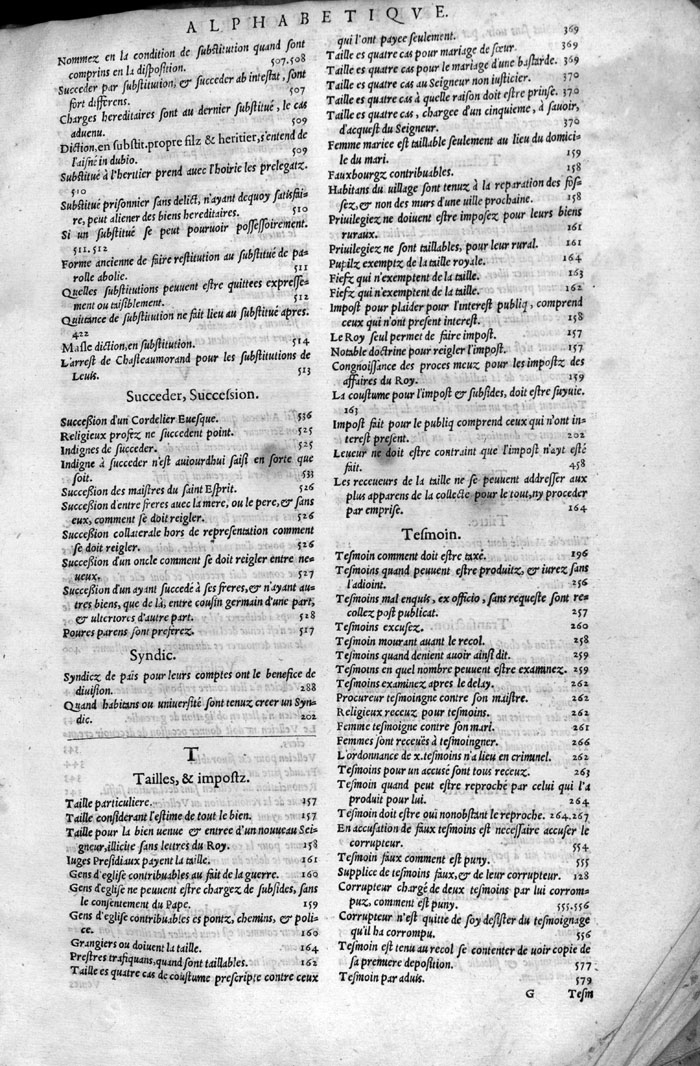 ALPHABETIQVE.
Nommez en la condition de substitution quand sont
comprins en la disposition. 507,508
Succeder par substitution, & succeder ab intestat, sont
fort differens. 507
Charges hereditaires sont au dernier substitué, le cas
aduenu. 509
Diction, en substit. propre filz & heritier, s'entend de
l'aisné in dubio. 509
Substitué à l'heritier prend avec l'hoirie les prelegatz.
510
Substitué prisonnier sans delict, n'ayant dequoy satisfai-
re, peut aliener des biens hereditaires. 510
Si un substitué se peut pouruoir possessoirement.
511.512
Forme ancienne de faire restitution au substitué de pa-
rolle abolie. 511
Quelles substitutions peuuent estre quittees expresse-
ment ou taisiblement. 512
Quittance de substitution ne fait lieu au substitué apres.
422
Masle diction, en substitution. 514
L'arrest de Chasteaumorand pour les substitutions de
Leuis. 513
Succeder, Succession.
Succession d'un Cordelier Euesque. 536
Religieux profez ne succedent point. 525
Indignes de succeder. 525
Indigne à succeder n'est auiourdhui saisi en sorte que
soit. 533
Succession des maistres du saint Esprit. 526
Succession d'entre freres avec la mere, ou le pere, & sans
eux, comment se doit reigler. 526
Succession collaterale hors de representation comment
se doit reigler. 526
Succession d'un oncle comment se doit reigler entre ne-
ueux. 527
Succession d'un ayant succedé à ses freres, & n'ayant au-
tres biens, que de là, entre cousin germain d'une part,
& ulteriors d'autre part. 528
Poures parens sont preferez. 517
Syndic.
Syndicz de païs pour leurs comptes ont le benefice de
diuision. 288
Quand habitans ou université sont tenuz creer un Syn-
dic. 202
T
Tailles, & impostz.
Taille particuliere. 157
Taille considerant l'estime de tout le bien. 157
Taille pour la bien uenue & entree d'un nouueau Sei-
gneur, illicite sans lettres du Roy. 158
Iuges Presidiaux payent la taille. 161
Gens d'eglise contribuables au fait de la guerre. 160
Gens d'eglise ne peuuent estre chargez de subsides, sans
le consentement du Pape. 159
Gens d'eglise contribuables es pontz, chemins, & poli-
ce. 160
Grangiers ou doiuent la taille. 164
Prestres trafiquans, quand sont taillables. 162
Taille es quatre cas de coustume prescripte contre ceux
qui l'ont payee seulement. 369
Taille es quatre cas pour mariage de sœur. 369
Taille es quatre cas pour le mariage d'une bastarde. 369
Taille es quatre cas au Seigneur non iusticier. 370
Taille es quatre cas à quelle raison doit estre prinse. 370
Taille es quatre cas, chargee d'un cinquieme, à sauoir,
d'acquest du Seigneur. 370
Femme mariee est taillable seulement au lieu du domici-
le du mari. 159
Fauxbourgz contribuables. 158
Habitans du uillage sont tenuz à la reparation des fos-
sez, & non des murs d'une uille prochaine. 158
Priuilegiez ne doiuent estre imposez pour leurs biens
ruraux. 161
Priuilegiez ne sont taillables, pour leur rural. 161
Pupilz exemptz de la taille royale. 164
Fiefz qui n'exemptent de la taille. 163
Fiefz qui n'exemptent de la taille. 162
Impost pour plaider pour l'interest publiq, comprend
ceux qui n'ont present interest. 158
Le Roy seul permet de faire impost. 157
Notable doctrine pour reigler l'impost. 157
Congnoissance des proces meuz pour les impostz des
affaires du Roy. 159
La coustume pour l'impost & subsides, doit estre suyuie.
163
Impost fait pour le publiq comprend ceux qui n'ont in-
terest present. 202
Leueur ne doit estre contraint que l'impost n'ayt esté
fait. 458
Les receueurs de la taille ne se peuuent addresser aux
plus apparens de la collecte pour le tout, ny proceder
par emprise. 164
Tesmoin.
Tesmoin comment doit estre taxé. 196
Tesmoins quand peuuent estre produitz, & iurez sans
l'adioint. 256
Tesmoins mal enquis, ex officio, sans requeste sont re-
collez post publicat. 257
Tesmoins excusez. 260
Tesmoin mourant auant le recol. 258
Tesmoins quand denient auoir ainsi dit. 259
Tesmoins en quel nombre peuuent estre examinez. 259
Tesmoins examinez apres le delay. 262
Procureur tesmoingne contre son maistre. 262
Religieux receuz pour tesmoins. 262
Femme tesmoigne contre son mari. 261
Femmes sont receuës à tesmoingner. 266
L'ordonnance de x. tesmoins n'a lieu en criminel. 262
Tesmoins pour un accusé sont tous receuz. 263
Tesmoin quand peut estre reproché par celui qui l'a
produit pour lui. 264
Tesmoin doit estre oui nonobstant le reproche. 264,267
En accusation de faux tesmoins est necessaire accuser le
corrupteur. 554
Tesmoin faux comment est puny. 555
Supplice de tesmoins faux, & de leur corrupteur. 128
Corrupteur chargé de deux tesmoins par lui corrom-
puz, comment est puny. 555,556
Corrupteur n'est quitte de soy desister du tesmoignage
qu'il ha corrompu. 556
Tesmoin est tenu au recol se contenter de uoir copie de
sa premiere deposition. 577
Tesmoin par aduis. 579
G Tesm